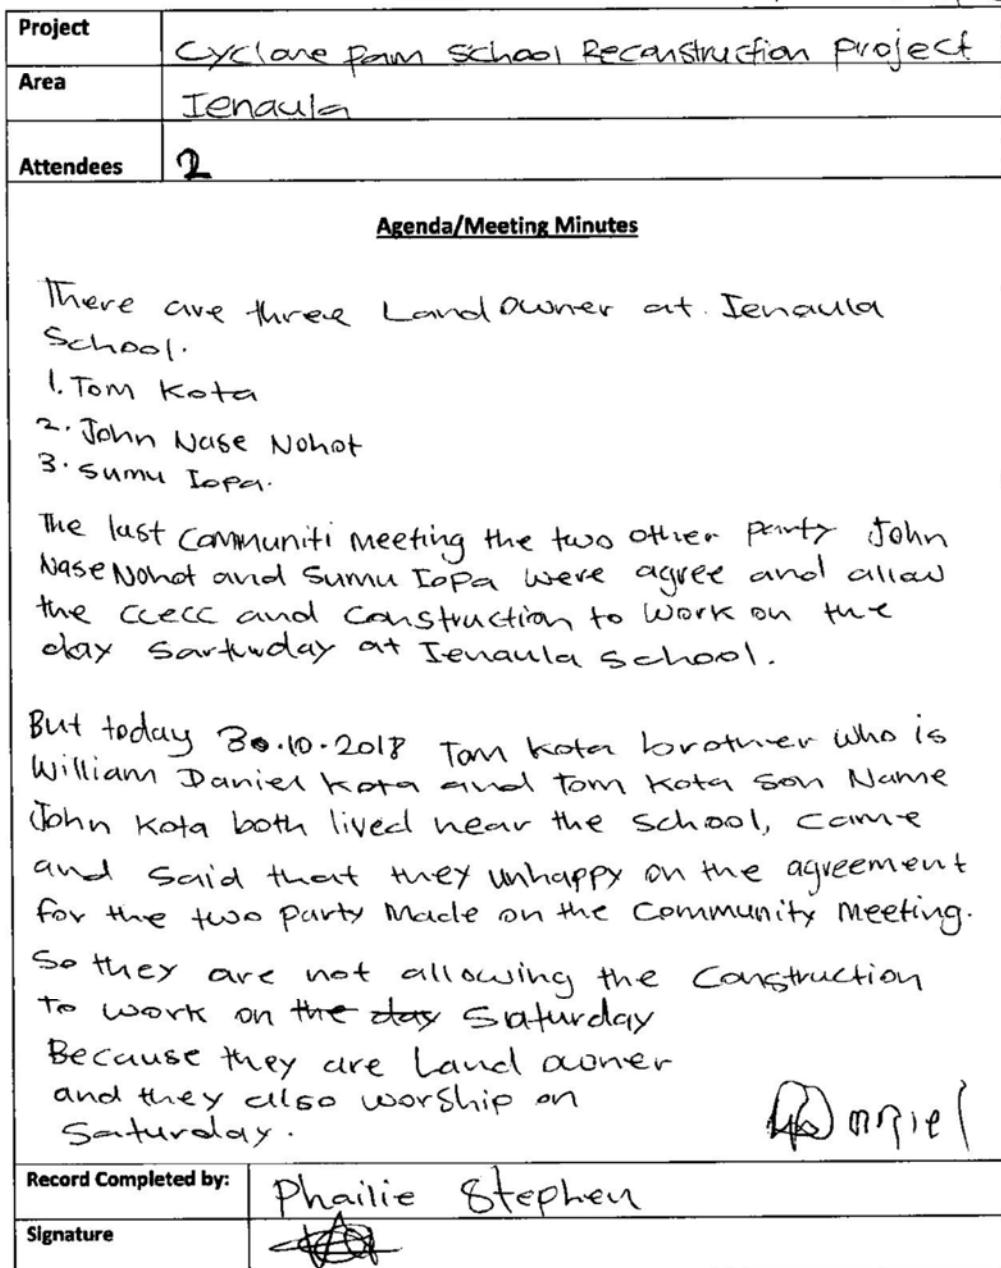 Project
Cyclone pam School Reconstruction project
Area
Ienaula
Attendees
2
Agenda/Meeting Minutes
There are three Land owner at Ienaula
School.
1. Tom Kota
2. John Nase Nohot
3. Sumu Iopa.
The last Communiti meeting the two other party John
Nase Nohot and Sumu Iopa were agree and allow
the CCECC and Construction to work on the
day Sarturday at Ienaula school.
But today 30.10.2018 Tom Kota brother who is
William Daniel Kota and Tom Kota Son Name
John Kota both lived near the school, came
and said that they unhappy on the agreement
for the two party Made on the Community Meeting.
So they are not allowing the Construction
To work on the day Saturday
Because they are Land owner
and they also worship on
Saturday.
Record Completed by:
Phailie Stephen
Signature